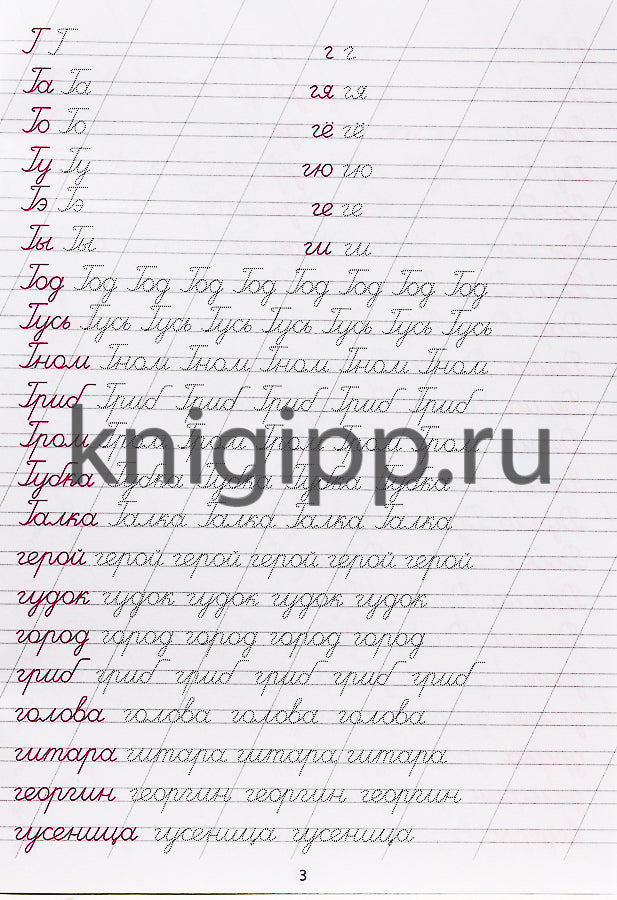 Г Г г г
Га Га гя гя
Го Го гё гё
Гу Гу гю гю
Гэ Гэ ге ге
Гы Гы ги ги
Год Год Год Год Год Год Год Год Год
Гусь Гусь Гусь Гусь Гусь Гусь Гусь Гусь
Гном Гном Гном Гном Гном Гном
Гриб Гриб Гриб Гриб Гриб Гриб
Гром Гром Гром Гром Гром Гром
knigipp.ru
Губка Губка Губка Губка Губка
Галка Галка Галка Галка Галка
герой герой герой герой герой герой
гудок гудок гудок гудок гудок
город город город город город
гриб гриб гриб гриб гриб гриб
голова голова голова голова
гитара гитара гитара гитара
георгин георгин георгин георгин
гусеница гусеница гусеница
3